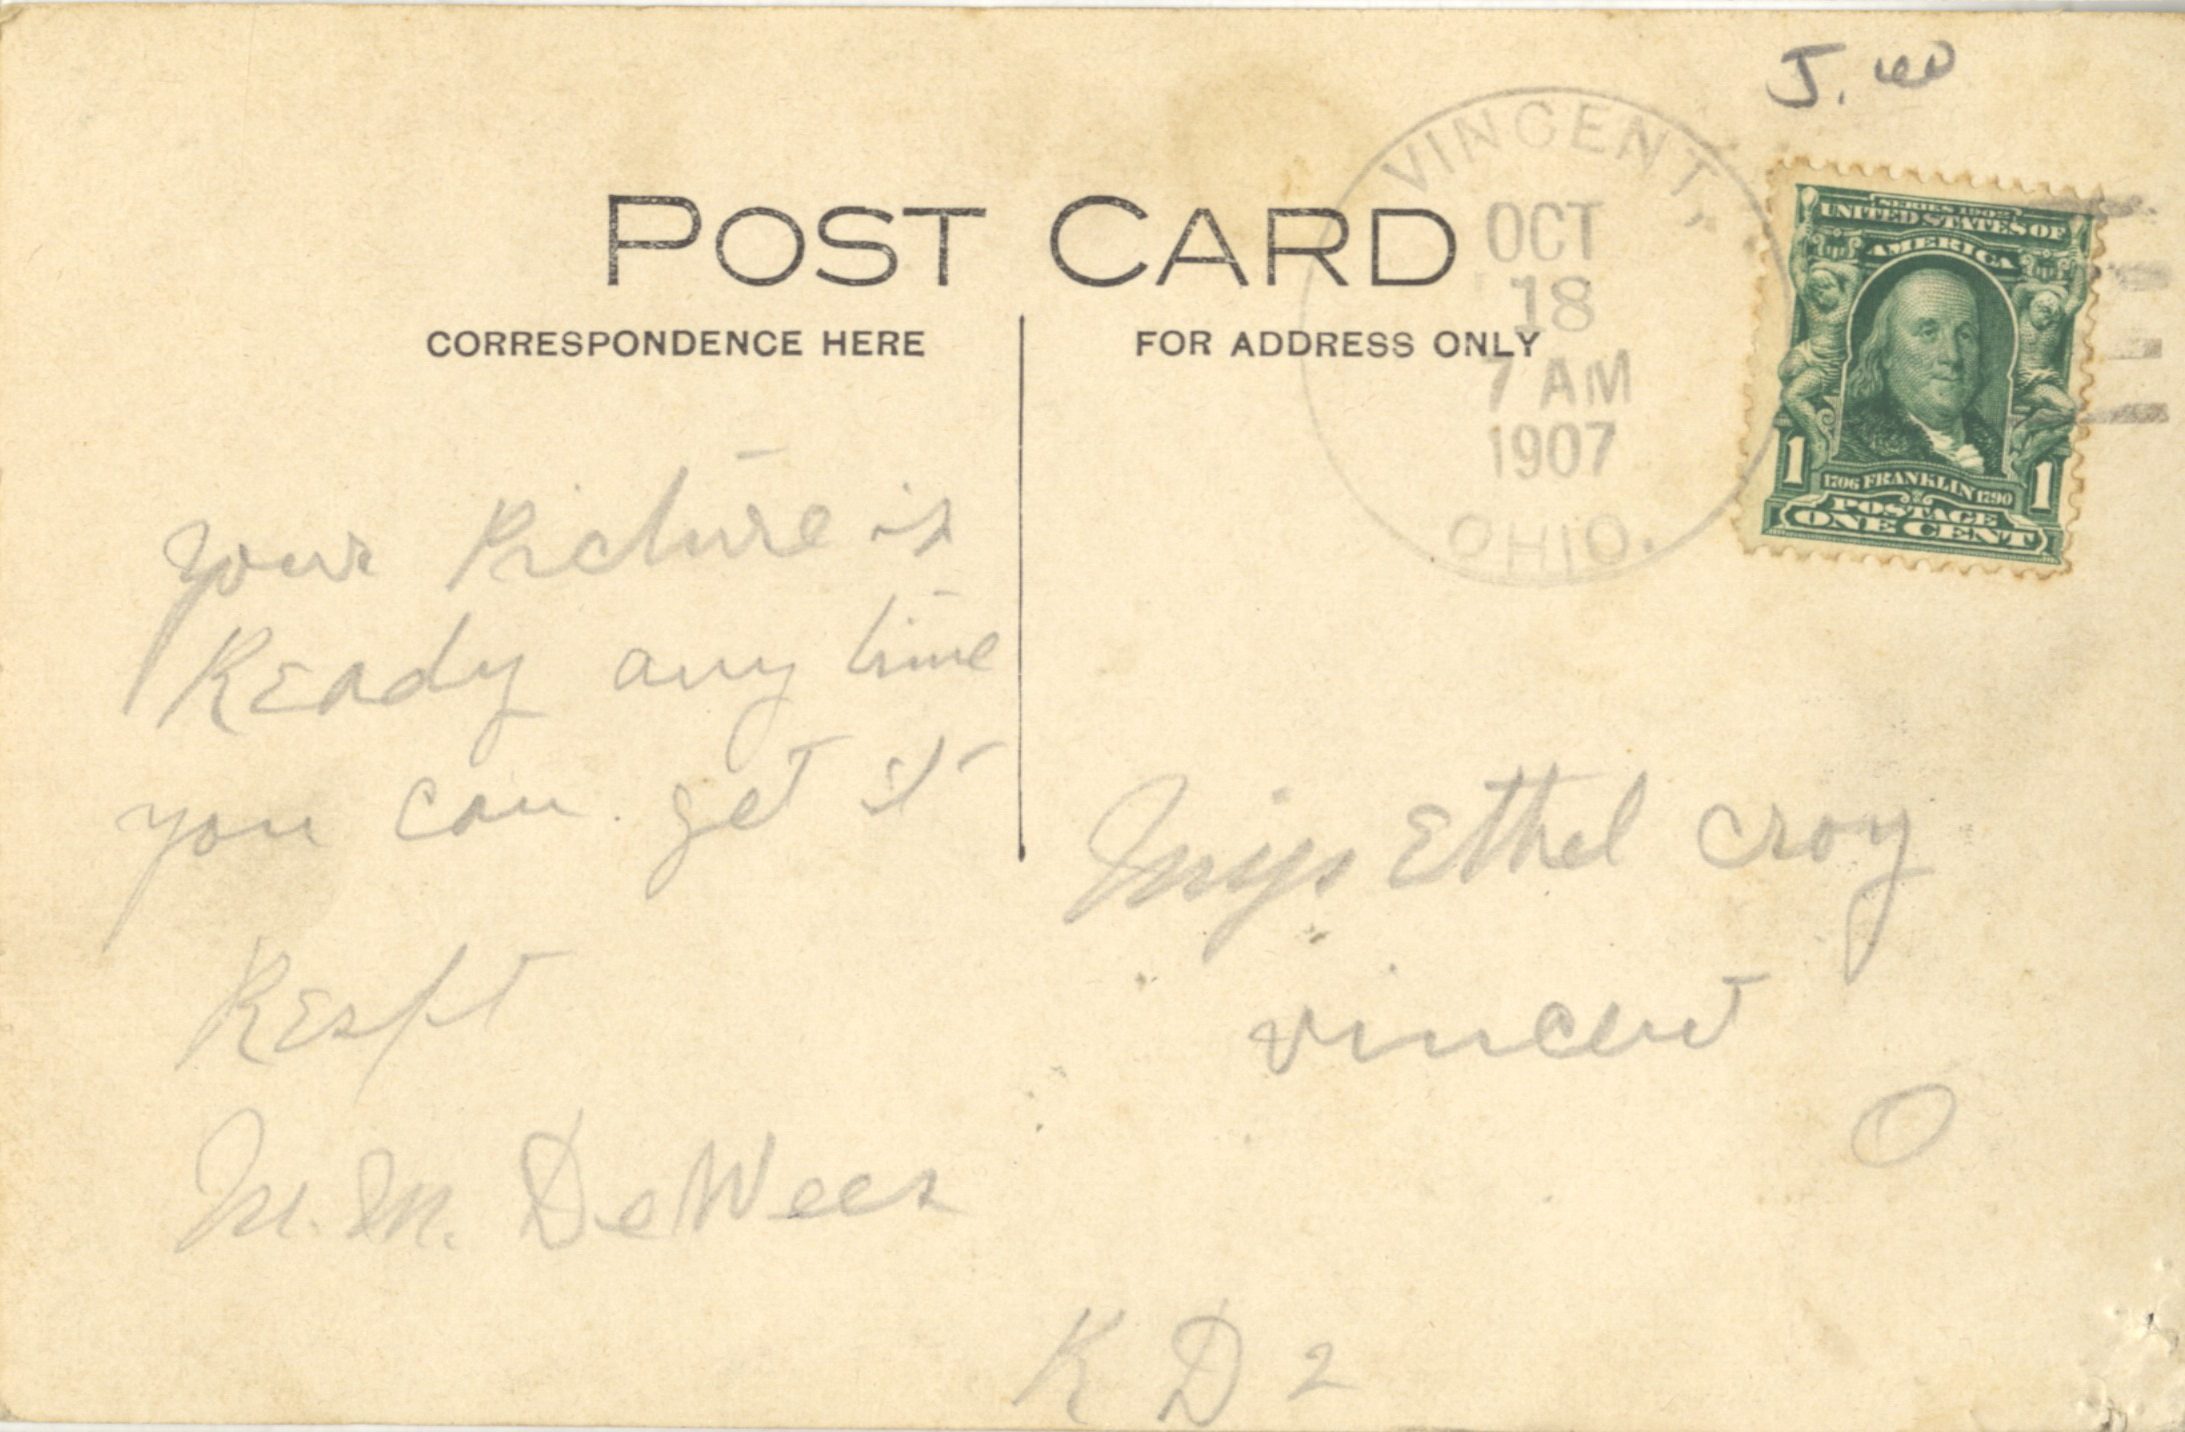 POST CARD
CORRESPONDENCE HERE
FOR ADDRESS ONLY
VINCENT,
OCT
18
7 AM
1907
OHIO.
SERIES 1902
UNITED STATES OF
AMERICA
1 1
1706 FRANKLIN 1790
POSTAGE
ONE CENT
Your Picture is
Ready any time
you can get it
Respt
M. M. DeWees
Miss Ethel Croy
Vincent
O
RD 2